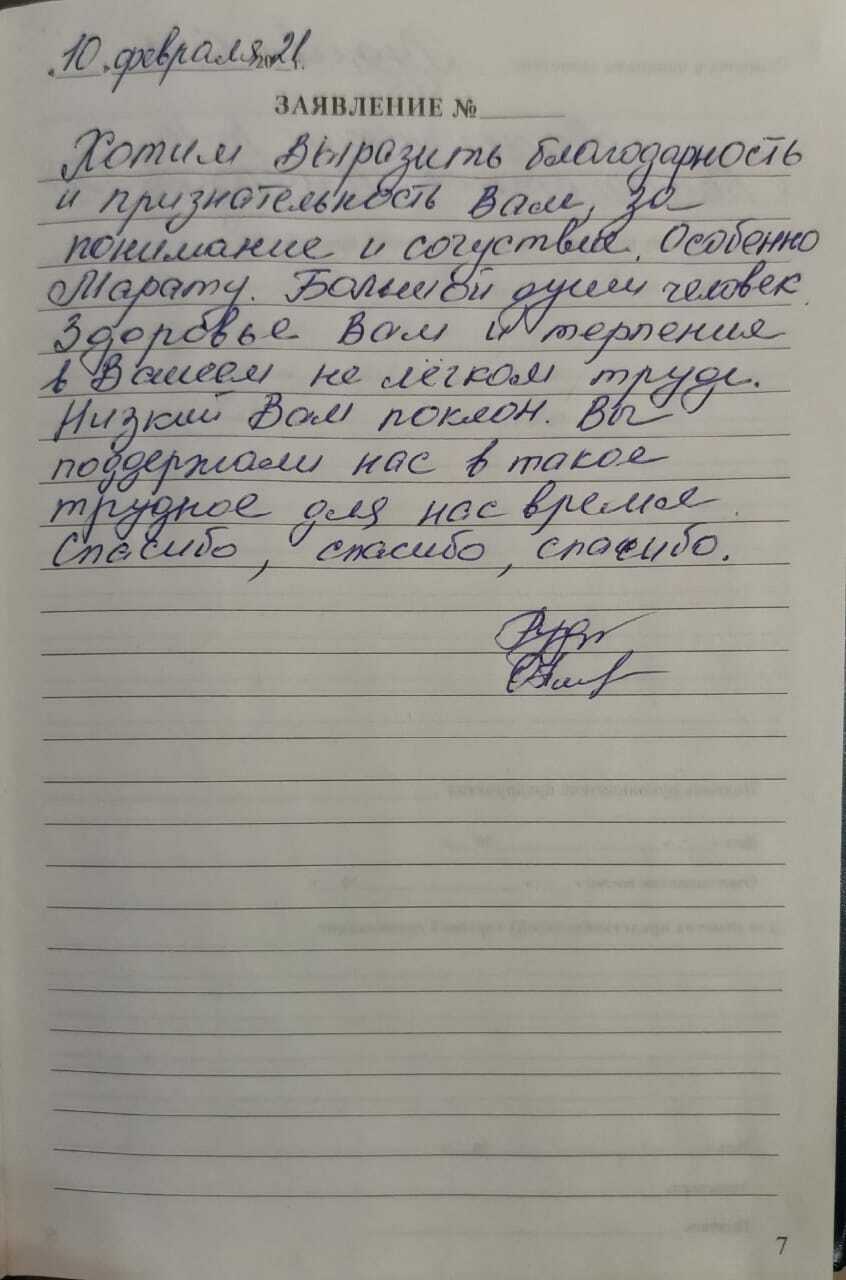 "10" февраля 2021 г.
ЗАЯВЛЕНИЕ №
Хотим выразить благодарность
и признательность Вам, за
понимание и согуствие. Особенно
Марату. Большой души человек.
Здоровье Вам и терпения
в Вашем не лёгком труде.
Низкий Вам поклон. Вы
поддержали нас в такое
трудное для нас время.
Спасибо, спасибо, спасибо.
7